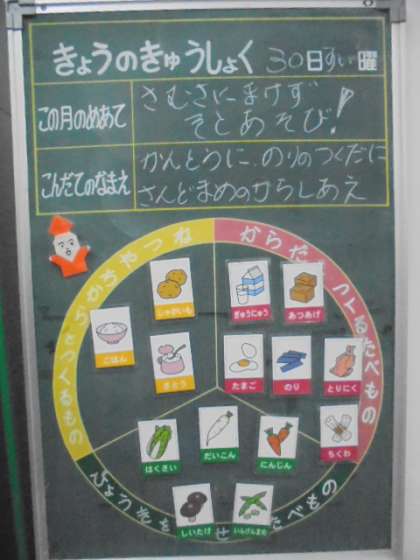 きょうのきゅうしょく 30日すい曜
この月のめあて
さむさにまけず
そとあそび!
こんだてのなまえ
かんとうに、のりのつくだに
さんどまめのからしあえ
ちからやねつ
になるもの
からだをつくるたべもの
じゃがいも
ぎゅうにゅう
あつあげ
ごはん
さとう
たまご
のり
とりにく
はくさい
だいこん
にんじん
ちくわ
しいたけ
いんげんまめ
たべもの